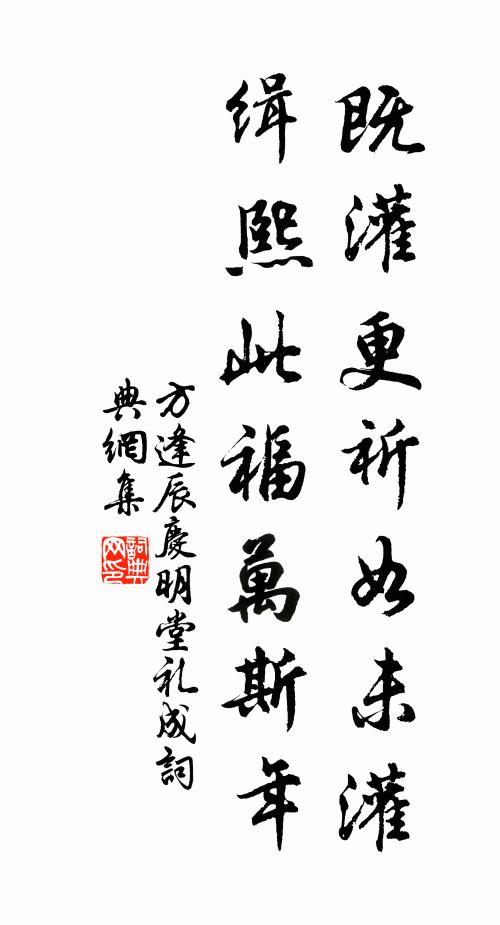 既灌更祈如未灌
缉熙此福萬斯年
方逢辰慶明堂礼成詞
典網集
詞典
网印